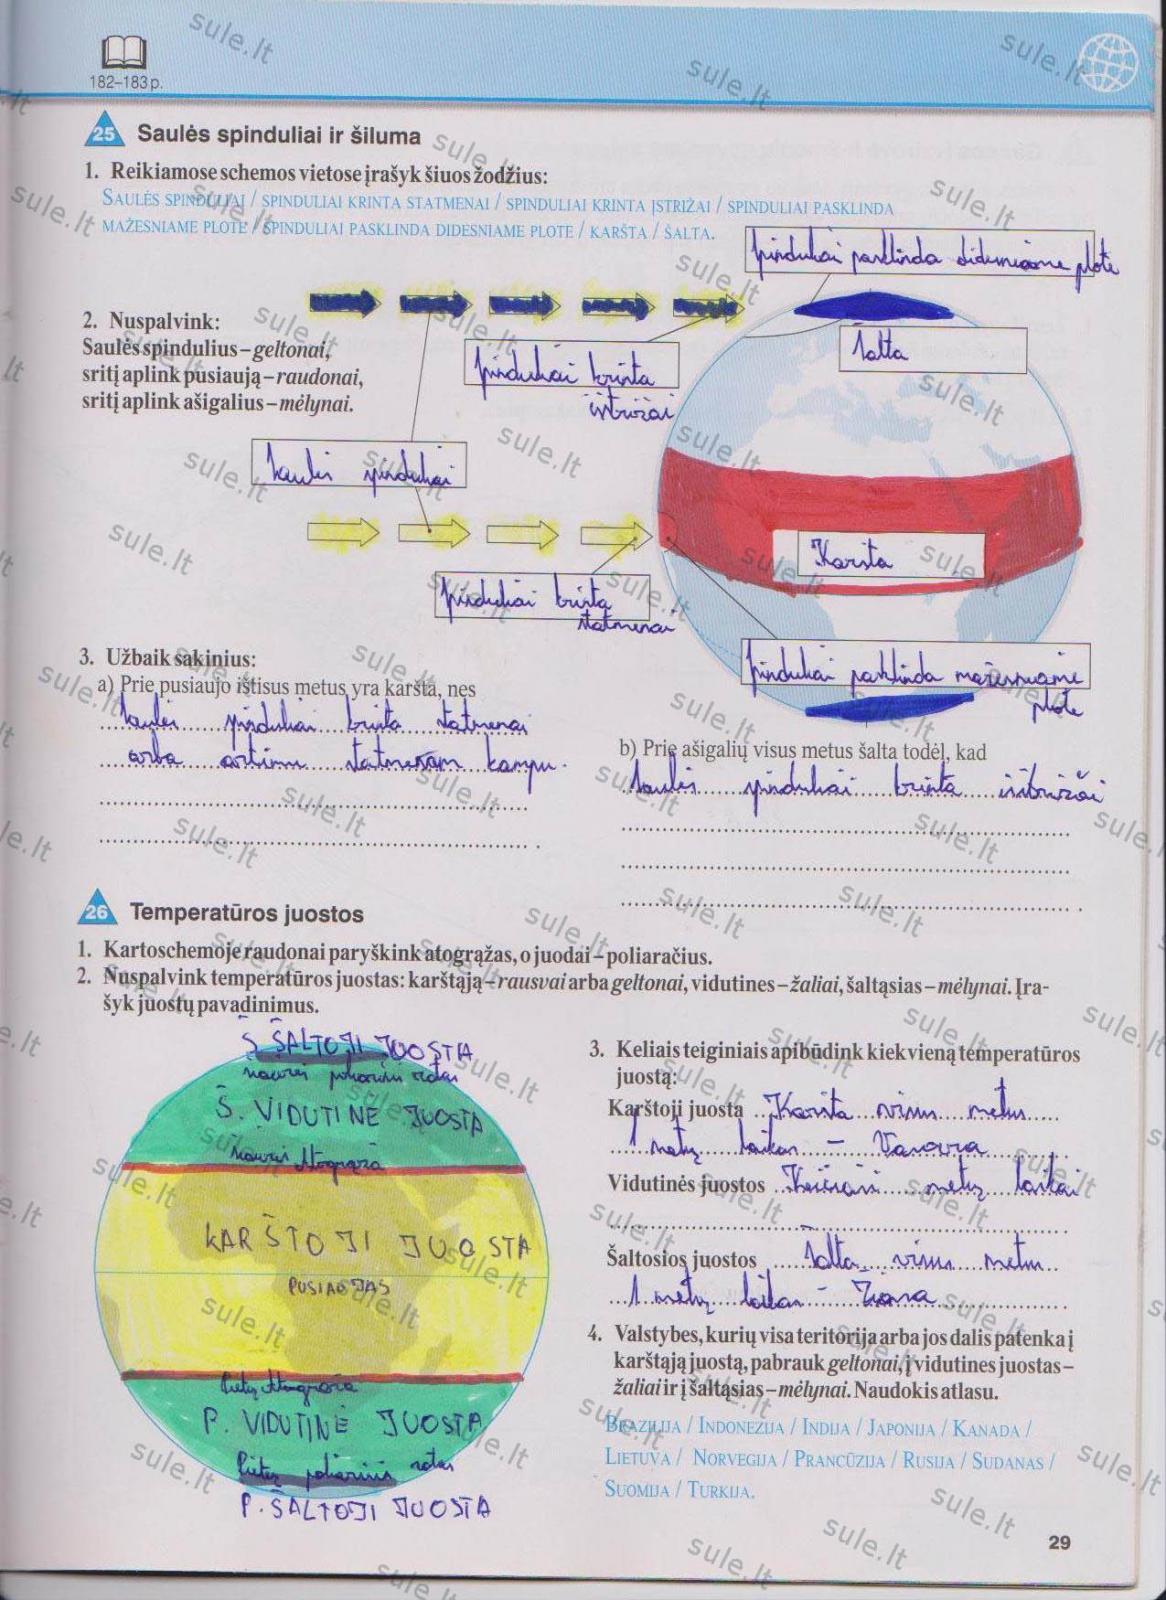 182–183 p.
25 Saulės spinduliai ir šiluma
1. Reikiamose schemos vietose įrašyk šiuos žodžius:
SAULĖS SPINDULIAI / SPINDULIAI KRINTA STATMENAI / SPINDULIAI KRINTA ĮSTRIŽAI / SPINDULIAI PASKLINDA
MAŽESNIAME PLOTE / SPINDULIAI PASKLINDA DIDESNIAME PLOTE / KARŠTA / ŠALTA.
spinduliai pasklinda didesniame plote
2. Nuspalvink:
Saulės spindulius – geltonai,
sritį aplink pusiaują – raudonai,
sritį aplink ašigalius – mėlynai.
Šalta
spinduliai krinta
įstrižai
Saulės spinduliai
Karšta
spinduliai krinta
statmenai
spinduliai pasklinda mažesniame
plote
3. Užbaik sakinius:
a) Prie pusiaujo ištisus metus yra karšta, nes
saulės spinduliai krinta statmenai
arba artimu statmenam kampu.
b) Prie ašigalių visus metus šalta todėl, kad
saulės spinduliai krinta įstrižai
26 Temperatūros juostos
1. Kartoschemoje raudonai paryškink atogrąžas, o juodai – poliaračius.
2. Nuspalvink temperatūros juostas: karštąją – rausvai arba geltonai, vidutines – žaliai, šaltąsias – mėlynai. Įra-
šyk juostų pavadinimus.
Š. ŠALTOJI JUOSTA
Š. VIDUTINĖ JUOSTA
Šiaurės Atogrąža
KARŠTOJI JUOSTA
PUSIAUJAS
Pietų Atogrąža
P. VIDUTINĖ JUOSTA
Pietų poliarinis ratas
P. ŠALTOJI JUOSTA
3. Keliais teiginiais apibūdink kiekvieną temperatūros
juostą:
Karštoji juosta Karšta visus metus
1 metų laikas – Vasara
Vidutinės juostos Keičiasi metų laikai
Šaltosios juostos Šalta visus metus
1 metų laikas – Žiema
4. Valstybes, kurių visa teritorija arba jos dalis patenka į
karštąją juostą, pabrauk geltonai, į vidutines juostas –
žaliai ir į šaltąsias – mėlynai. Naudokis atlasu.
BRAZILIJA / INDONEZIJA / INDIJA / JAPONIJA / KANADA /
LIETUVA / NORVEGIJA / PRANCŪZIJA / RUSIJA / SUDANAS /
SUOMIJA / TURKIJA.
29
sule.lt